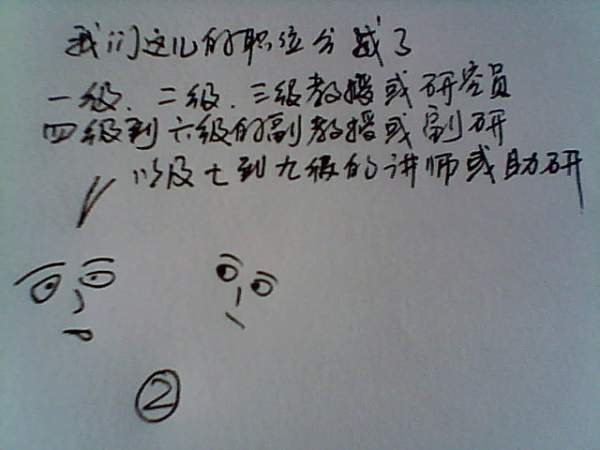 我们这儿的职位分成了
一级、二级、三级教授或研究员
四级到六级的副教授或副研
以及七到九级的讲师或助研
②